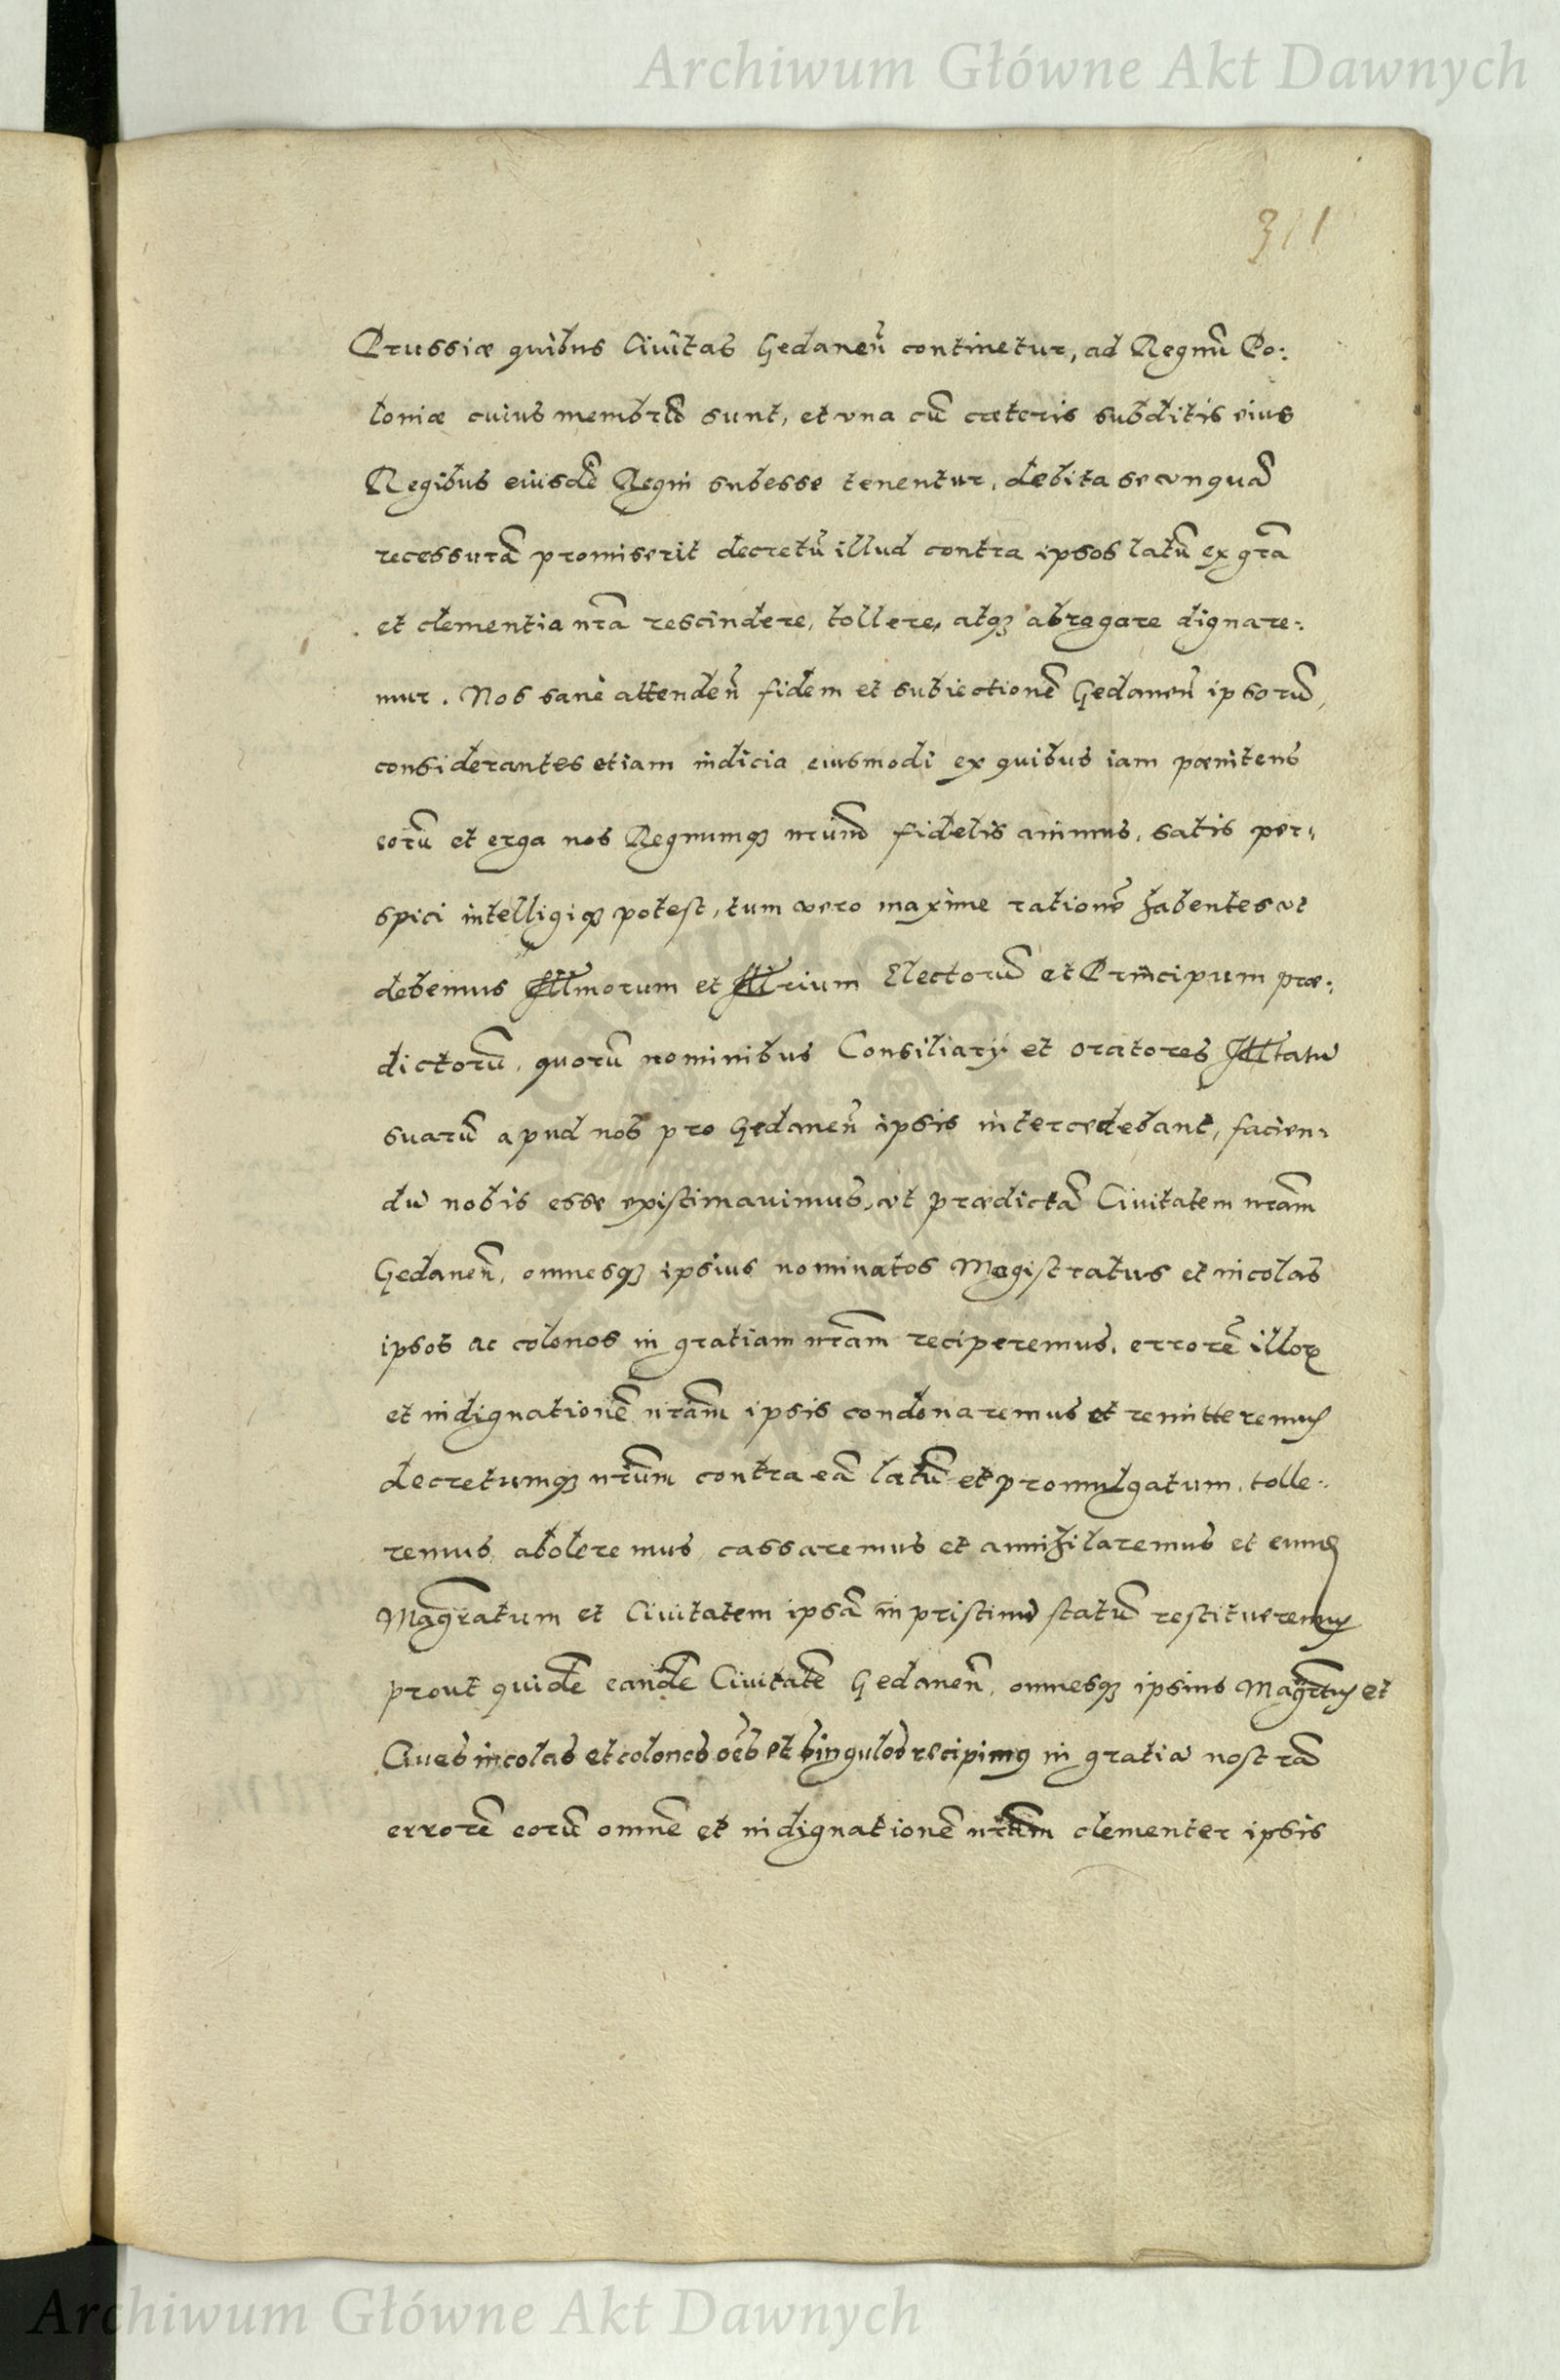 Archiwum Główne Akt Dawnych
311
Prussiæ quibus Civitas Gedaneñ continetur, ad Regnũ Po:
loniæ cuius membra sunt, et una cũ cæteris subditis eius
Regibus eiusdẽ Regni subesse tenentur, debita se unquã
recessurã promiserit decretũ illud contra ipsos latũ ex grã
et clementia nrã rescindere, tollere, atq3 abrogare dignare:
mur. Nos sane attendeñ fidem et subiectionẽ Gedaneñ ipsorũ,
considerantes etiam indicia eiusmodi ex quibus iam pœnitens
eorũ et erga nos Regnumq3 nrũm fidelis animus, satis per:
spici intelligiq3 potest, tum vero maxime rationẽ habentes ut
debemus Illmorum et Illrium Electorũ et Principum præ:
dictorũ, quorũ nominibus Consiliarÿ et oratores Illtatũ
suarũ apud nos pro Gedaneñ ipsis intercedebant, facien:
dũ nobis esse existimavimus, ut prædictã Civitatem nrãm
Gedaneñ, omnesq3 ipsius nominatos Magistratus et incolas
ipsos ac colonos in gratiam nrãm reciperemus, errorẽ illoꝝ
et indignationẽ nrãm ipsis condonaremus et remitteremus
decretumq3 nrũm contra eã latũ et promulgatum, tolle:
remus, aboleremus, cassaremus et annihilaremus et eund
Magr̃atum et Civitatem ipsã in pristinũ statũ restitueremus
prout quidẽ eandẽ Civitatẽ Gedaneñ, omnesq3 ipsius Magr̃tus et
Cives incolas et colonos oẽs et singulos recipimus in gratiã nostrã
errorẽ eorũ omnẽ et indignationẽ nrãm clementer ipsis
Archiwum Główne Akt Dawnych